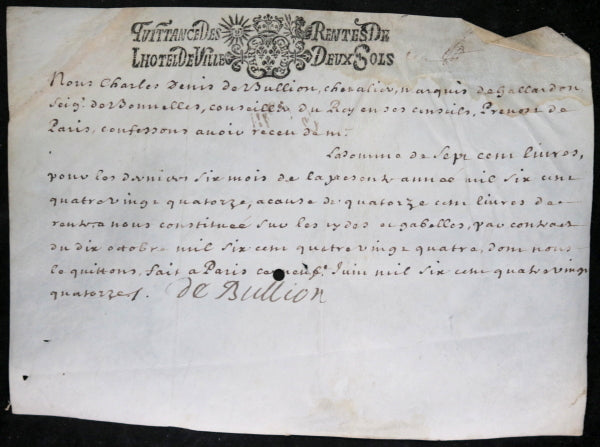 QUITTANCE DES RENTES DE
LHOTEL DE VILLE DEUX SOLS
Nous Charles Denis de Bullion, chevalier, Marquis de Gallardon,
Seigr. de Bonnelles, conseiller du Roy en ses conseils, Prevost de
Paris, confessons avoir receu de mr.
La somme de sept cent livres,
pour les derniers six mois de la presente année mil six cent
quatre vingt quatorze, a cause de quatorze cent livres de
rente a nous constituée sur les aydes et gabelles, par contract
du dix octobre mil six cent quatre vingt quatre, dont nous
le quittons, fait a Paris ce neufe. Juin mil six cent quatre vingt
quatorze.
de Bullion